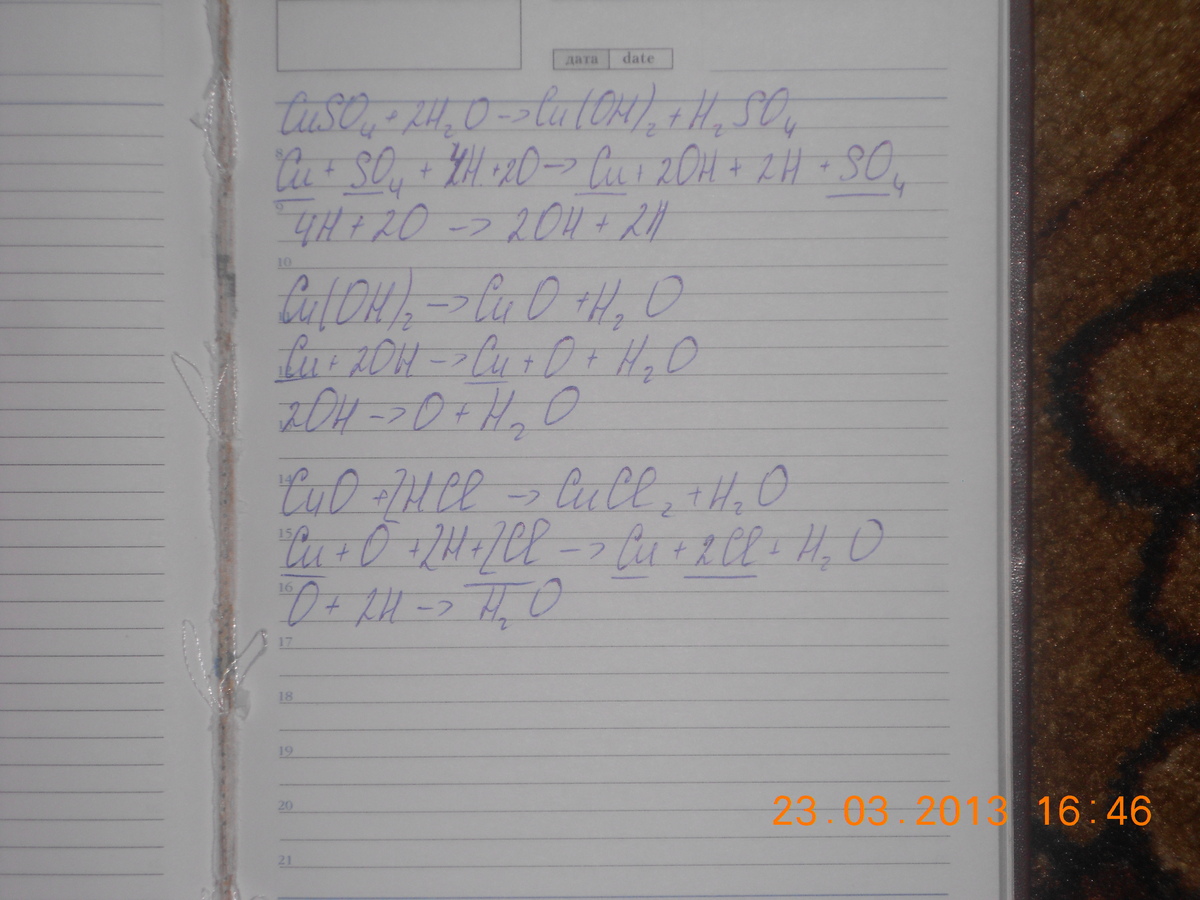 дата date
CuSO₄ + 2H₂O -> Cu(OH)₂ + H₂SO₄
8
Cu + SO₄ + 4H + 2O -> Cu + 2OH + 2H + SO₄
9
4H + 2O -> 2OH + 2H
10
Cu(OH)₂ -> CuO + H₂O
Cu + 2OH -> Cu + O + H₂O
2OH -> O + H₂O
14
CuO + 2HCl -> CuCl₂ + H₂O
15
Cu + O + 2H + 2Cl -> Cu + 2Cl + H₂O
16
O + 2H -> H₂O
17
18
19
20
21
23.03.2013 16:46